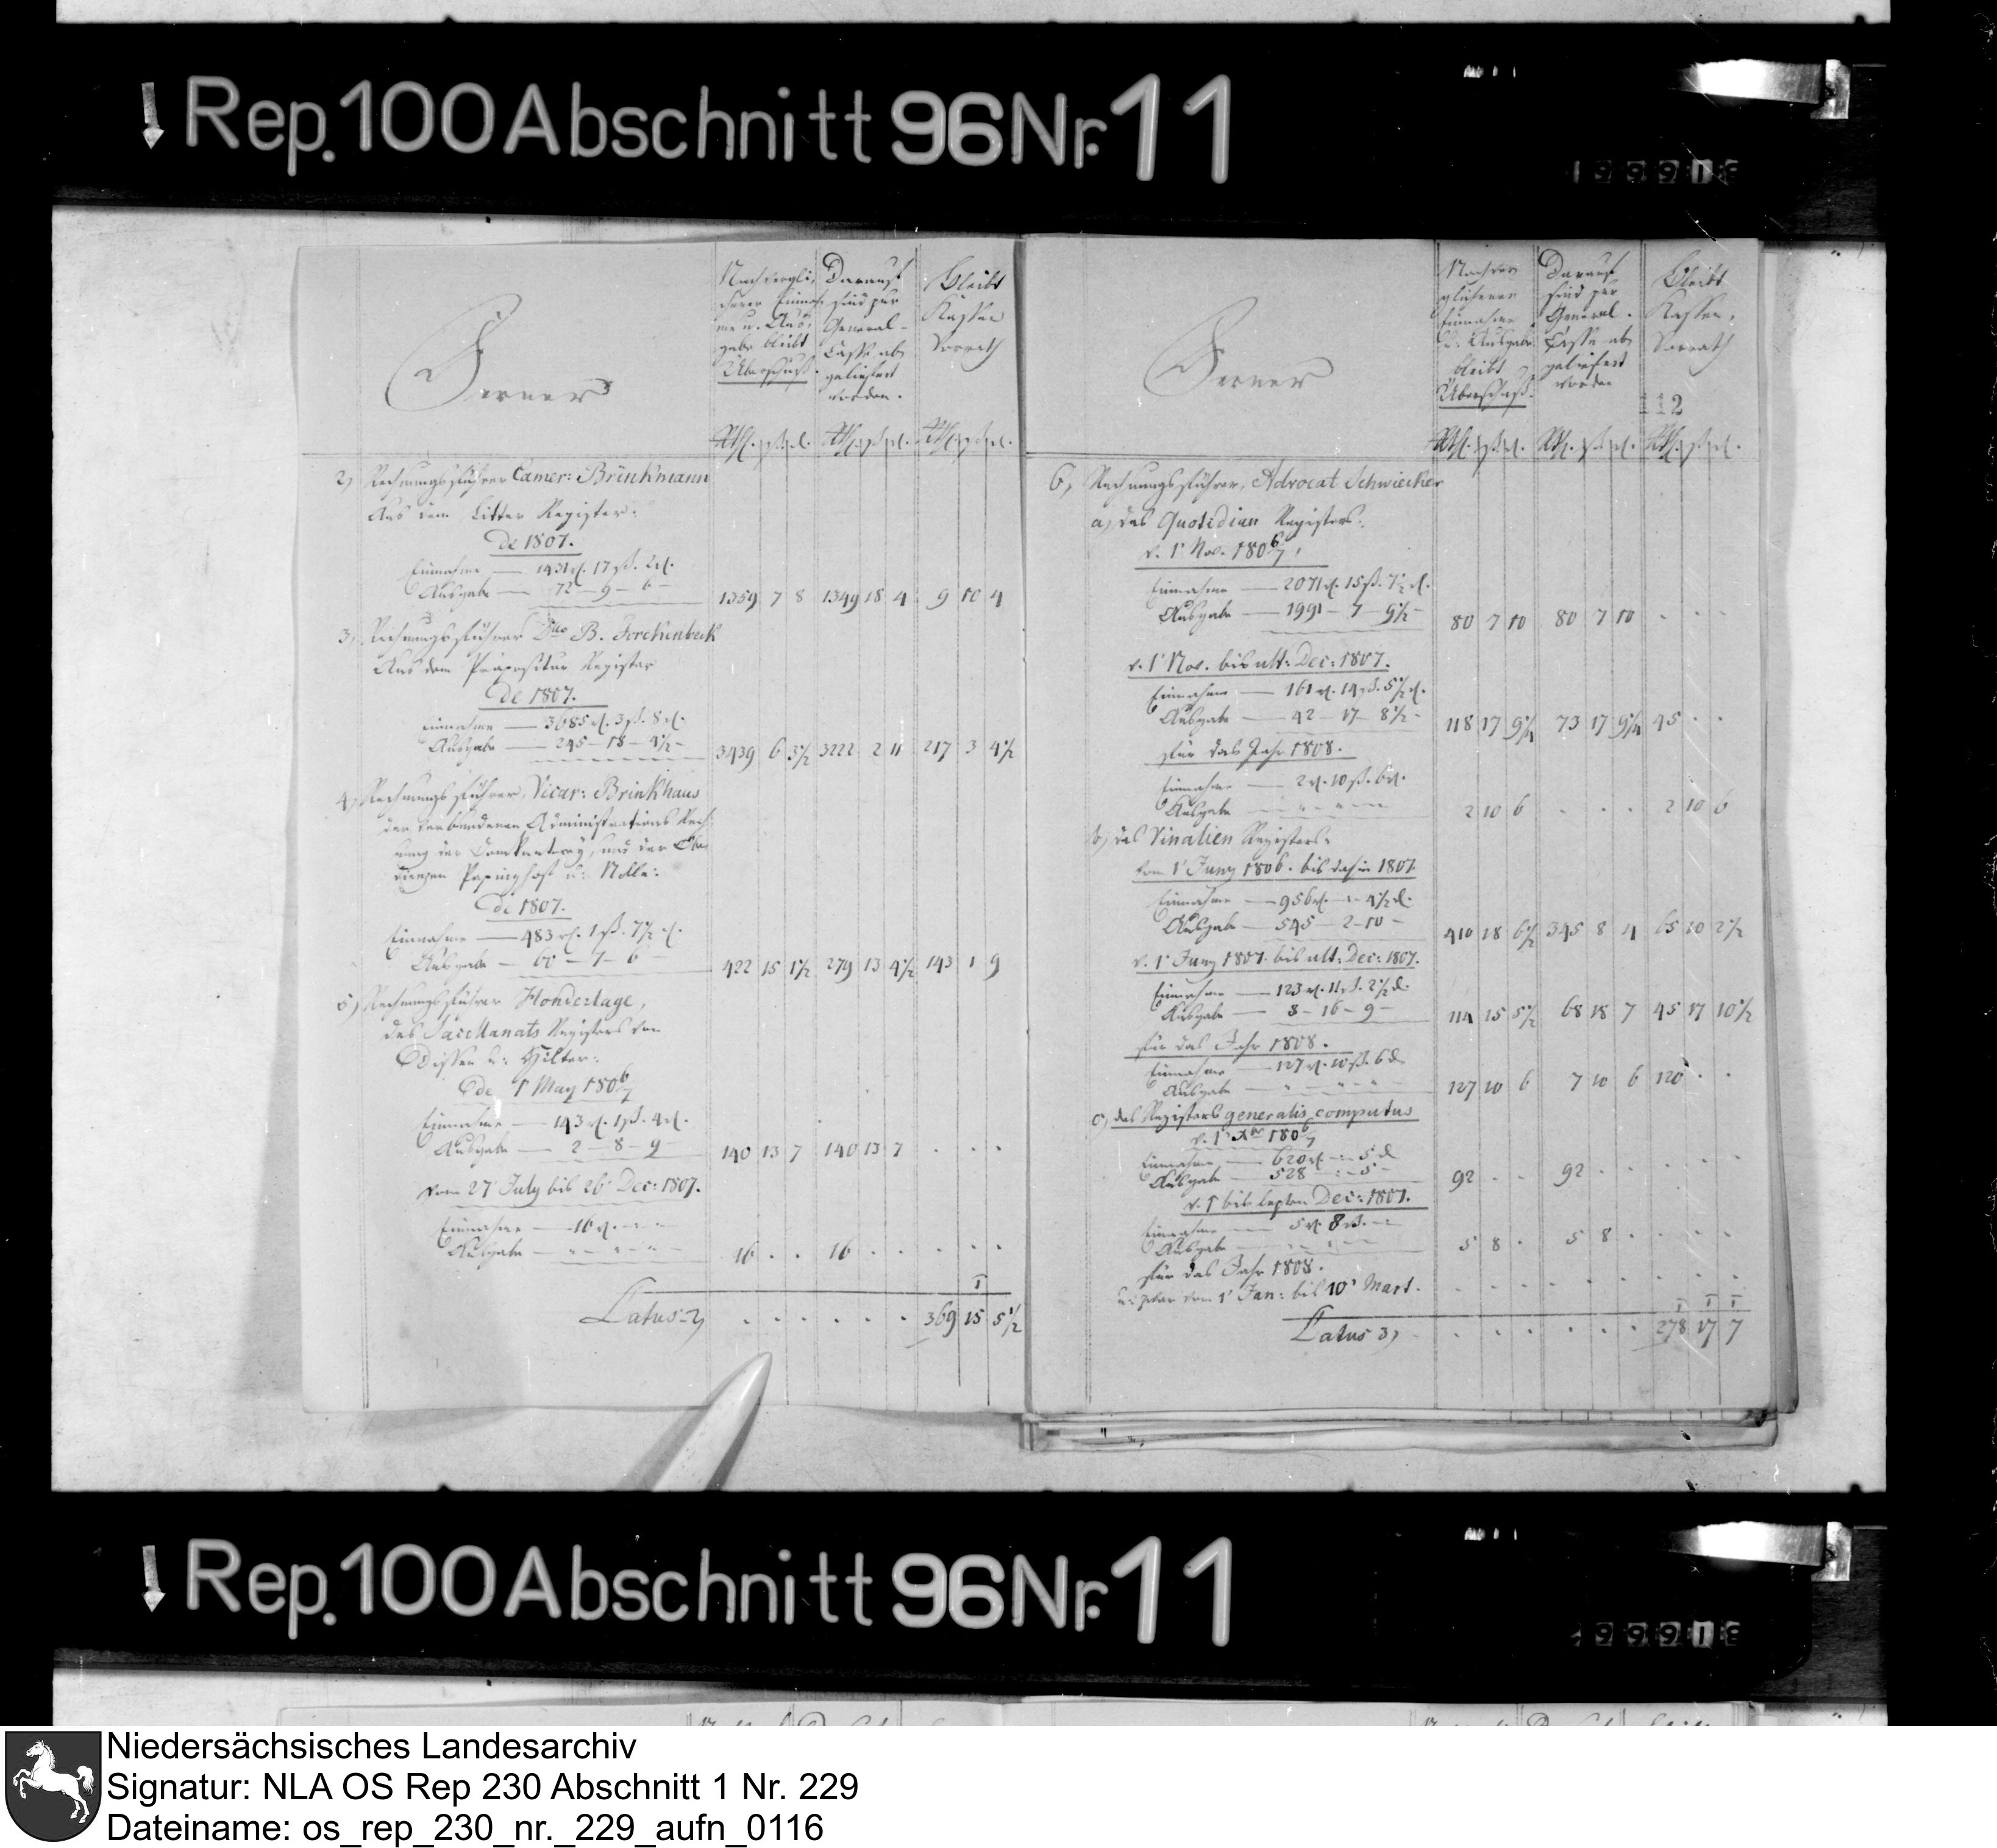 Rep. 100 Abschnitt 96 Nr. 11
Ferner
Nach vergli-
chener Einnah-
me u. Aus-
gabe bleibt
Überschuß.
Darauf
sind zur
General-
Casse ab-
geliefert
worden.
Bleibt
Kassen
Vorrath
Rthl. ß d. Rthl. ß d. Rthl. ß d.
2) Rechnungsführer Camer: Brinkmann
Aus dem Litter Register:
de 1807.
Einnahme — 1431 rl. 17 ß. 2 d.
Ausgabe — 72 — 9 — 6 — 1359 7 8 1349 18 4 9 10 4
3) Rechnungsführer Dus B. Forckenbeck
Aus dem Präpositur Register
de 1807.
Einnahme — 3685 rl. 3 ß. 8 d.
Ausgabe — 245 — 18 — 4 1/2 — 3439 6 3 1/2 3222 2 11 217 3 4 1/2
4) Rechnungsführer, Vicar: Brinkhaus
der verbundenen Administrations Rech-
nung der und der Obe-
dienzen Papinghof u: Nolle:
de 1807.
Einnahme — 483 rl. 1 ß. 7 1/2 d.
Ausgabe — 60 — 7 — 6 — 422 15 1 1/2 279 13 4 1/2 143 1 9
5) Rechnungsführer Hondertage,
des Sacellanats Registers von
Dissen u: Hilter:
de 1' May 1806/7
Einnahme — 143 rl. 1 ß. 4 d.
Ausgabe — 2 — 8 — 9 — 140 13 7 140 13 7 . . .
vom 27' July bis 26' Dec: 1807.
Einnahme — 16 rl. — —
Ausgabe — " — " — " — 16 . . 16 . . . . .
Latus 2) . . . . . . 369 15 5 1/2
Ferner
Nach ver-
glichener
Einnahme
u: Ausgabe
bleibt
Überschuß.
Darauf
sind zur
General-
Casse ab-
geliefert
worden
Bleibt
Kassen-
Vorrath
112
Rthl. ß d. Rthl. ß d. Rthl. ß d.
6) Rechnungsführer, Advocat Schwicker
a) des Quotidian Registers:
v. 1' Nov. 1806/7
Einnahme — 2071 rl. 15 ß. 7 1/2 d.
Ausgabe — 1991 — 7 — 9 1/2 — 80 7 10 80 7 10 . . .
v. 1' Nov. bis ult: Dec: 1807.
Einnahme — 161 rl. 14 ß. 5 1/2 d.
Ausgabe — 42 — 17 — 8 1/2 — 118 17 9 1/4 73 17 9 1/4 45 . .
für das Jahr 1808.
Einnahme — 2 rl. 10 ß. 6 d.
Ausgabe — " — " — 2 10 6 . . . 2 10 6
b) des Vinalien Registers:
vom 1' Juny 1806. bis dahin 1807.
Einnahme — 956 rl. — 4 1/2 d.
Ausgabe — 545 — 2 — 10 — 410 18 6 1/2 345 8 4 65 10 2 1/2
v. 1' Juny 1807. bis ult: Dec: 1807.
Einnahme — 123 rl. 11 ß. 2 1/2 d.
Ausgabe — 8 — 16 — 9 — 114 15 5 1/2 68 18 7 45 17 10 1/2
für das Jahr 1808.
Einnahme — 127 rl. 10 ß. 6 d
Ausgabe — " — " — " — 127 10 6 7 10 6 120 . .
c) des Registers generalis computus
v. 1' Xbr 1806/7
Einnahme — 620 rl. — : — 5 d
Ausgabe — 528 — : — 5 — 92 . . 92 . . . . .
v. 1' bis letzten Dec: 1807.
Einnahme — 5 rl. 8 ß. —
Ausgabe — 5 8 . 5 8 . . . .
für das Jahr 1808.
u: zwar vom 1' Jan: bis 10' Mart. . . . . . . . . .
Latus 3) . . . . . . . 278 17 7
Rep. 100 Abschnitt 96 Nr. 11
Niedersächsisches Landesarchiv
Signatur: NLA OS Rep 230 Abschnitt 1 Nr. 229
Dateiname: os_rep_230_nr._229_aufn_0116